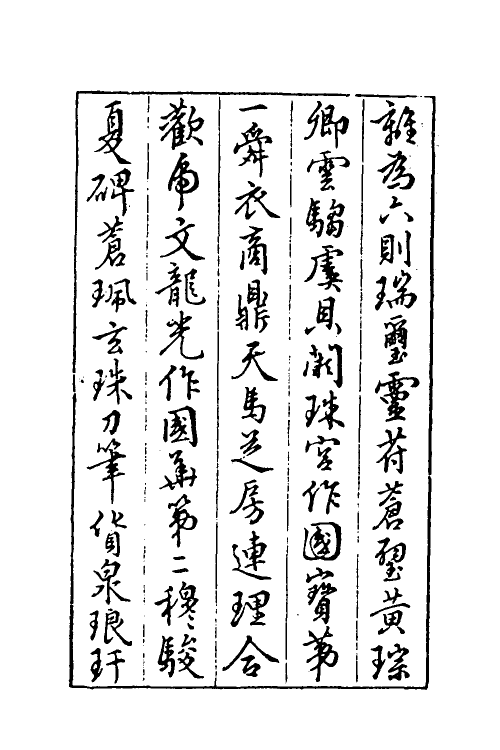 雜為六則瑞璽靈苻蒼璧黃琮
卿雲騶虞貝闕珠宮作國寶第
一舜衣商鼎天馬芝房連理合
歡虎文龍光作國華第二穆駿
夏碑蒼珮玄珠刀筆貨泉琅玕